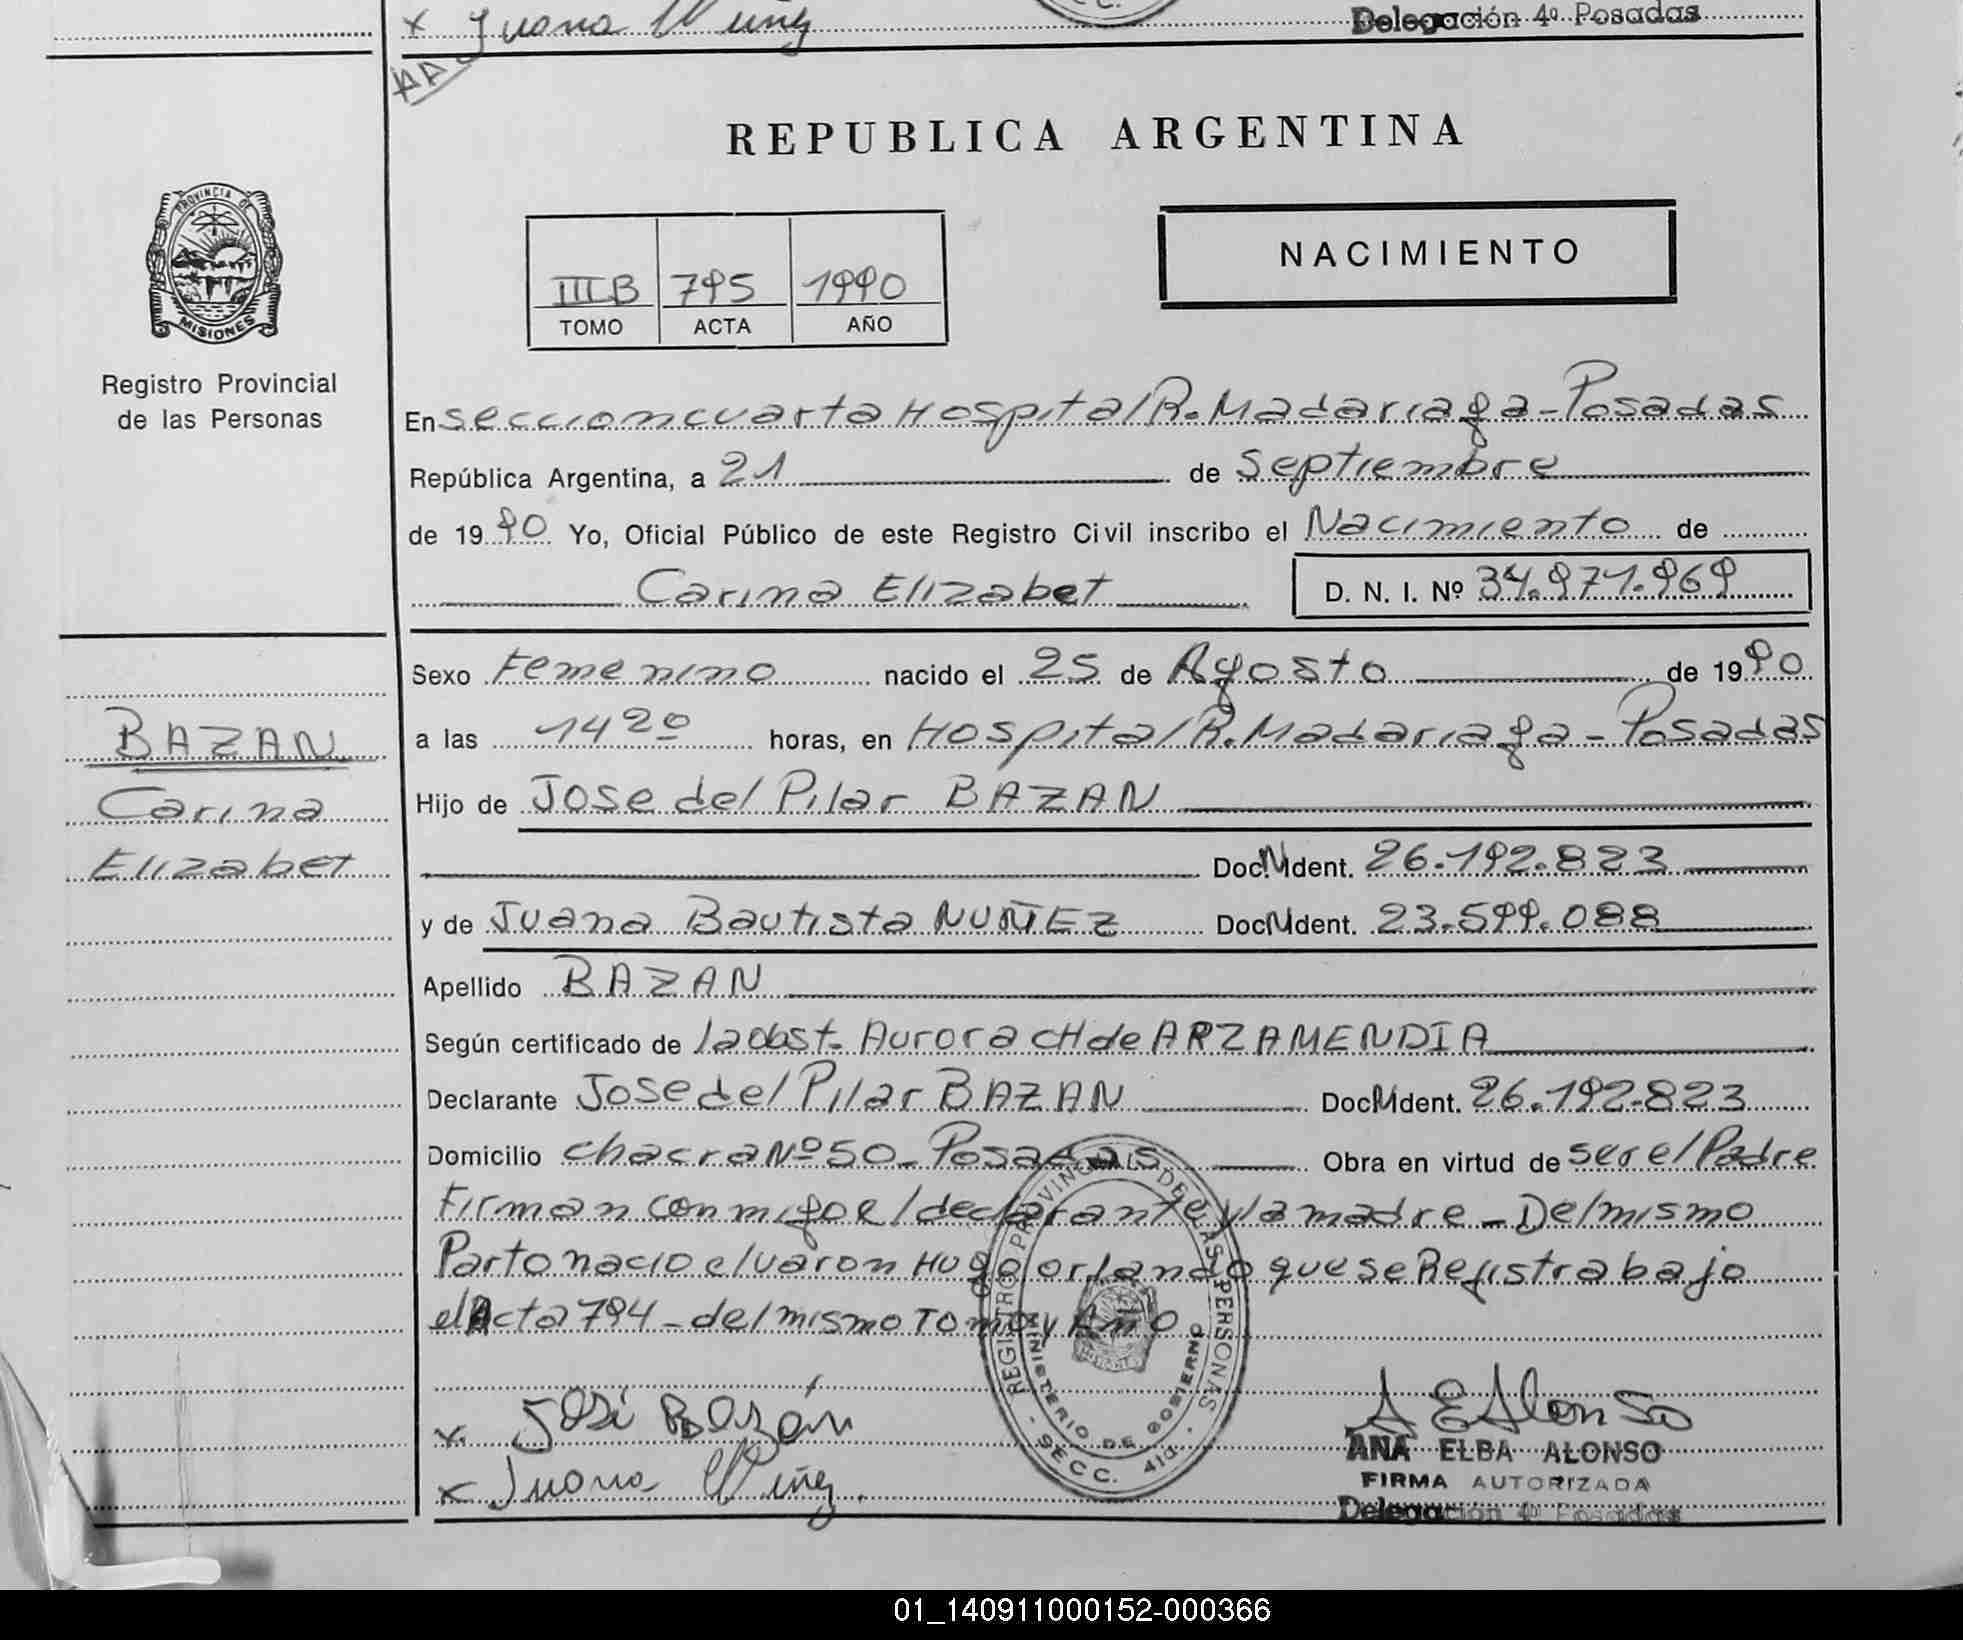 x Juana Nuñez
Delegación 4º Posadas
REPUBLICA ARGENTINA
PROVINCIA DE
MISIONES
Registro Provincial
de las Personas
NACIMIENTO
III B 795 1990
TOMO ACTA AÑO
En seccion cuarta Hospital R. Madariaga - Posadas
República Argentina, a 21 de septiembre
de 1990 Yo, Oficial Público de este Registro Civil inscribo el Nacimiento de
Carina Elizabet D. N. I. Nº 34.971.969
Sexo Femenino nacido el 25 de Agosto de 1990
a las 14 20 horas, en Hospital R. Madariaga - Posadas
Hijo de Jose del Pilar BAZAN
Doc. N Ident. 26.192.823
y de Juana Bautista NUÑEZ Doc N Ident. 23.599.088
Apellido BAZAN
Según certificado de la obst. Aurora CH de ARZAMENDIA
Declarante Jose del Pilar BAZAN Doc N Ident. 26.192.823
Domicilio chacra Nº 50 - Posadas Obra en virtud de ser el Padre
Firman conmigo el declarante y la madre - Del mismo
Parto nacio el varon Hugo orlando que se Registra bajo
el Acta 794 - del mismo Tomo y Año
BAZAN
Carina
Elizabet
x. José Bazán
x Juana Nuñez.
REGISTRO PROVINCIAL DE LAS PERSONAS
MINISTERIO DE GOBIERNO
SECC. 4ta
A E Alonso
ANA ELBA ALONSO
FIRMA AUTORIZADA
Delegación 4º Posadas
01_140911000152-000366